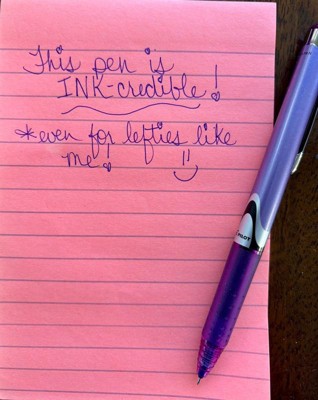 This pen is
INK-credible!
*even for lefties like
me!
PILOT